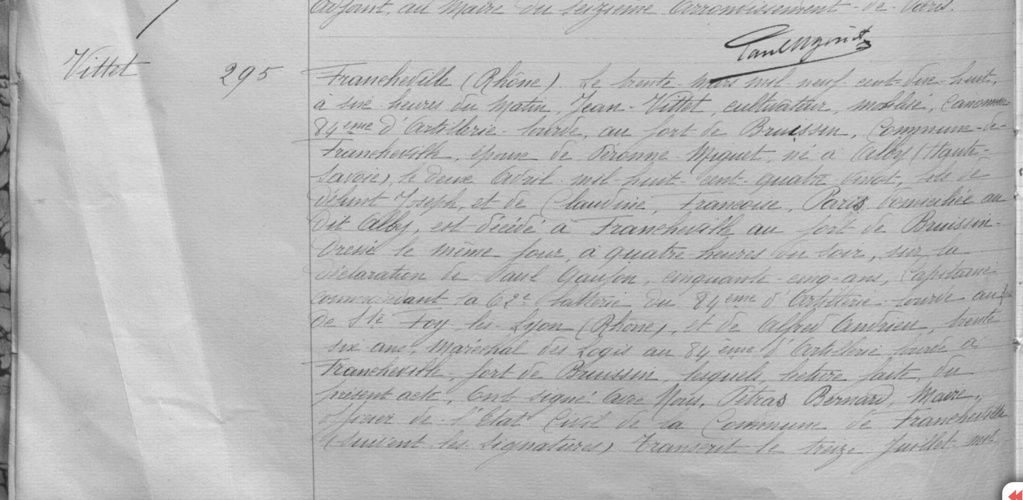 adjoint au Maire du seizième arrondissement de Paris.
Vittet
295
Francheville (Rhône). Le trente Mars mil neuf cent dix huit,
à six heures du Matin, Jean Vittet, cultivateur, mobilisé, Canonnier
84ème d'Artillerie lourde, au fort de Bruissin, Commune de
Francheville, époux de Péronne Miguet, né à Alby (Haute-
Savoie), le deux Avril mil huit cent quatre vingt, fils de
défunt Joseph, et de Claudine, Francoise, Paris, domiciliée au
dit Alby, est décédé à Francheville au fort de Bruissin.
Dressé le même jour, à quatre heures du soir, sur la
déclaration de Paul, cinquante cinq ans, Capitaine
commandant la 62e batterie du 84ème d'Artillerie lourde au
de Ste Foy les Lyon (Rhône), et de Alfred Andrieu, trente
six ans, Maréchal des Logis au 84ème d'Artillerie lourde à
Francheville, fort de Bruissin, lesquels, lecture faite, du
présent acte, ont signé avec Nous, Pétras Bernard, Maire,
officier de l'Etat Civil de la Commune de Francheville
(suivent les signatures) Transcrit le treize Juillet mil